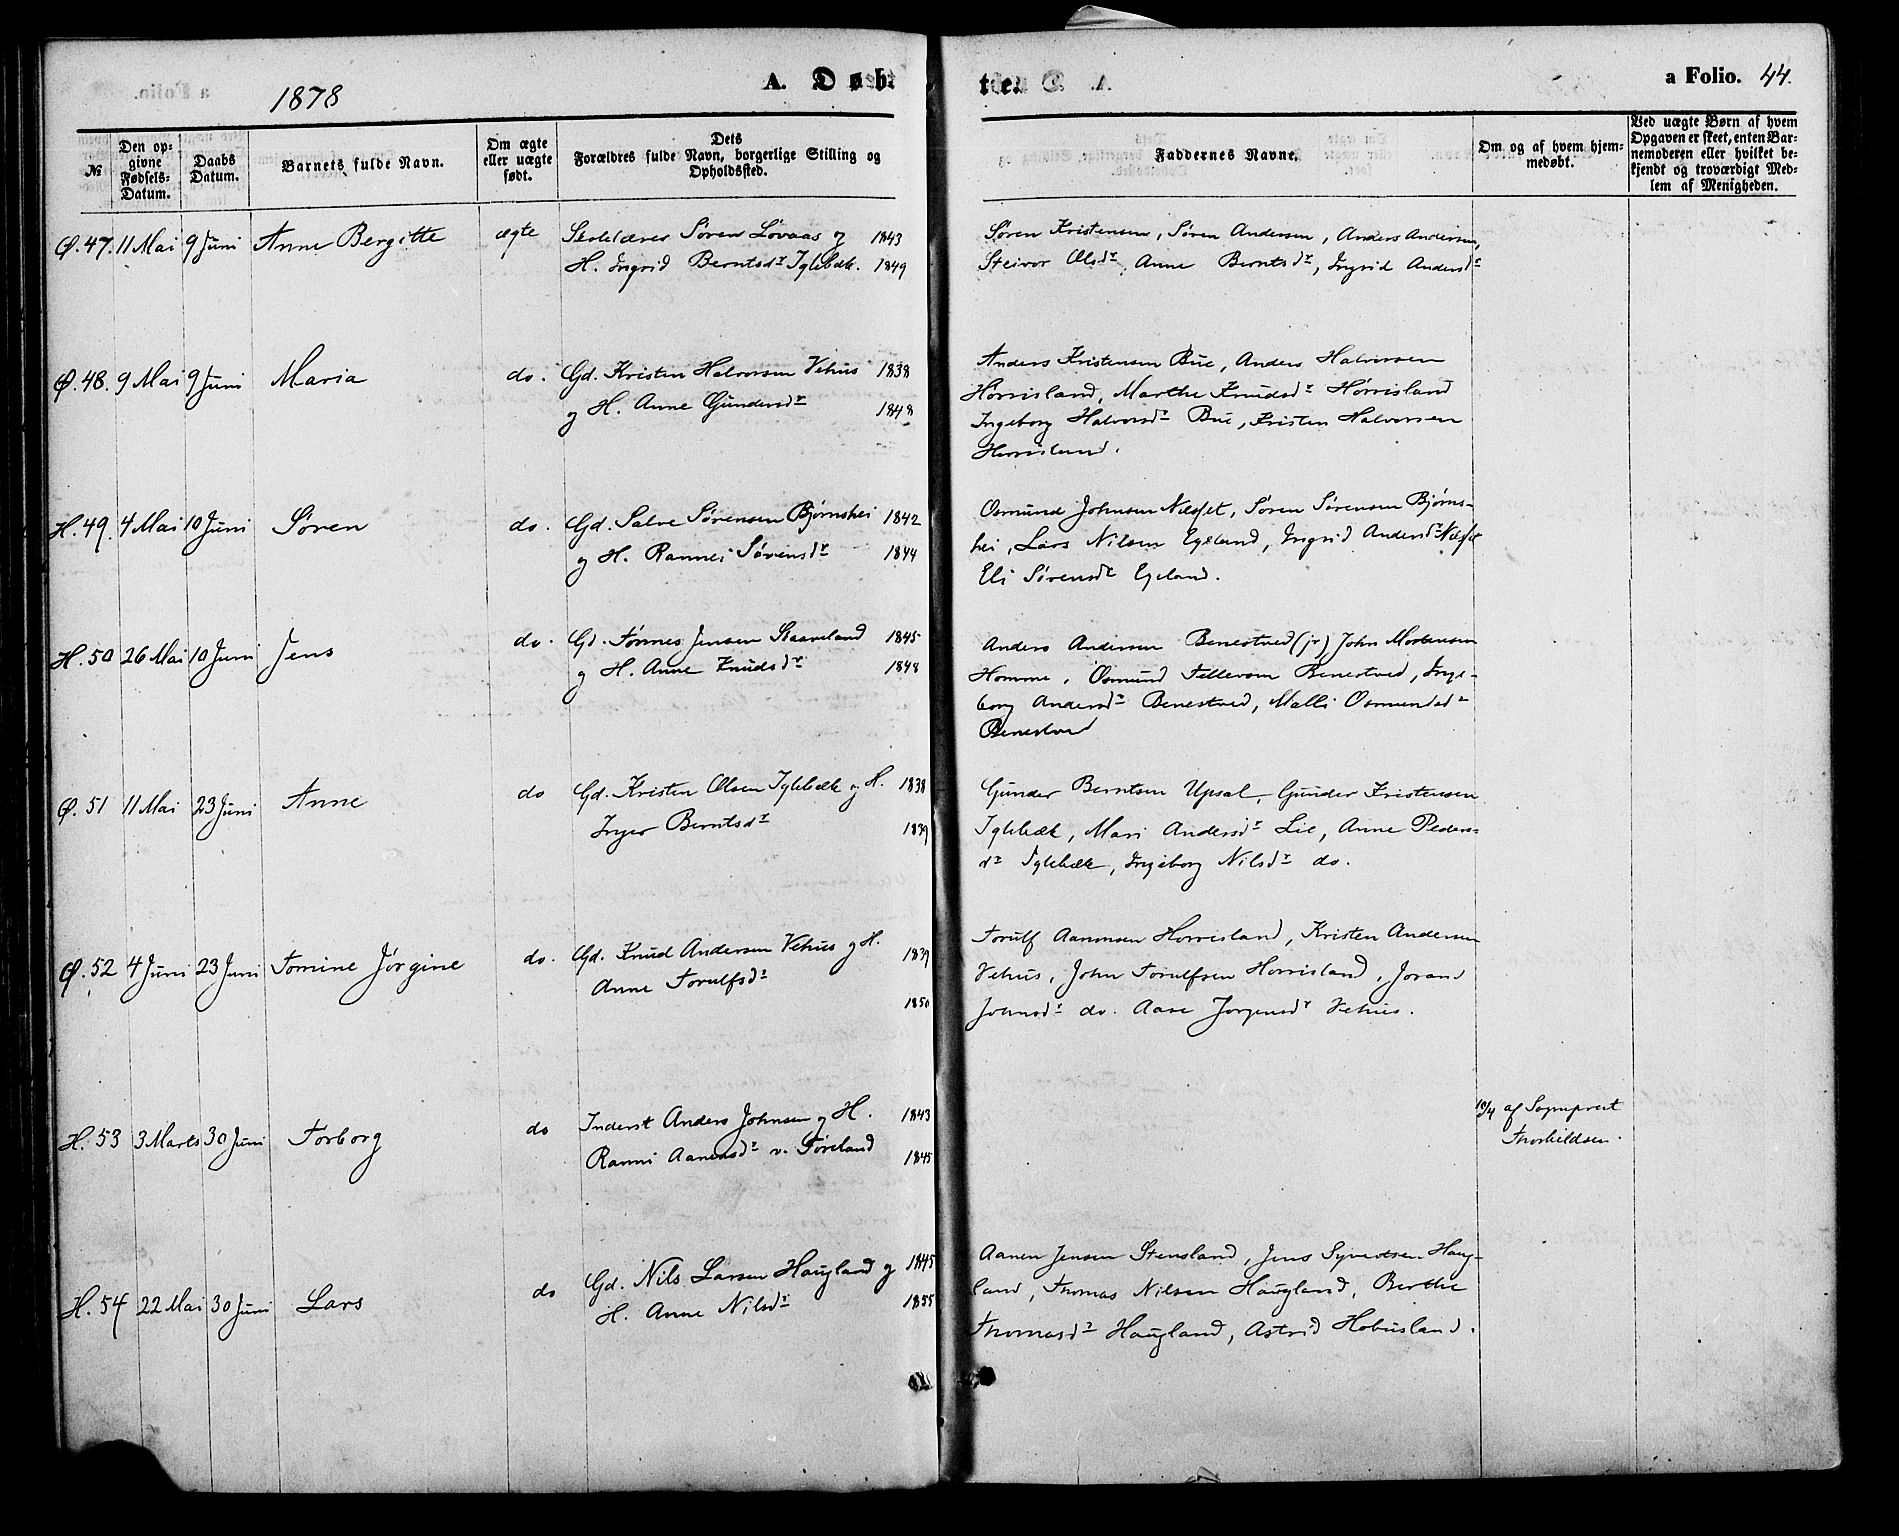 1878
A. Døb-
te.
a Folio. 44.
№
Den op-
givne
Fødsels-
Datum.
Daabs
Datum.
Barnets fulde Navn.
Om ægte
eller uægte
født.
Dets
Forældres fulde Navn, borgerlige Stilling og
Opholdssted.
Faddernes Navne.
Om og af hvem hjem-
medøbt.
Ved uægte Børn af hvem
Opgaven er skeet, enten Bar-
nemoderen eller hvilket be-
kjendt og troværdigt Med-
lem af Menigheden.
Ø. 47. 11 Mai 9 Juni Anne Bergitte ægte Skolelærer Søren Løvaas og 1843
H. Ingrid Berntsdr Iglebæk. 1849
Søren Kristensen, Søren Andersen, Anders Andersen,
Steivor Olsdr, Anne Berntsdr, Ingrid Andersdr
Ø. 48. 9 Mai 9 Juni Maria do. Gd. Kristen Halvorsen Vehus 1838
og H. Anne Gundersdr 1848
Anders Kristensen Bue, Anders Halvorsen
Hørrisland, Marthe Knudsdr Hørrisland
Ingeborg Halvorsdr Bue, Kristen Halvorsen
Hørrisland.
H. 49. 4 Mai 10 Juni Søren do. Gd. Salve Sørensen Bjørnshei 1842
og H. Rannei Sørensdr 1844
Osmund Johnsen Næset, Søren Sørensen Bjørns-
hei, Lars Nilsen Egeland, Ingrid Andersdr Næset
Eli Sørensdr Egeland.
H. 50 26 Mai 10 Juni Jens do. Gd. Tørnes Jensen Skaaveland 1845
og H. Anne Knudsdr 1848
Anders Andersen Benestved (jr), John Mortensen
Homme, Osmund Tellevsen Benestved, Inge-
borg Andersdr Benestved, Malli Osmundsdr
Benestved
Ø. 51 11 Mai 23 Juni Anne do Gd. Kristen Olsen Iglebæk og H. 1838
Inger Berntsdr 1839
Gunder Berntsen Upsal, Gunder Kristensen
Iglebæk, Mari Andersdr Lie, Anne Peders-
dr Iglebæk, Ingeborg Nilsdr do.
Ø. 52 4 Juni 23 Juni Tomine Jørgine do. Gd. Knud Andersen Vehus og H. 1839
Anne Torulfsdr 1850
Torulf Aanonsen Horrisland, Kristen Andersen
Vehus, John Torulfsen Horrisland, Jorand
Johnsdr do. Aase Jorgensdr Vehus.
H. 53 3 Marts 30 Juni Torborg do Inderst Anders Johnsen og H. 1843
Ranni Aanensdr v. Føreland 1845
10/4 af Sogneprest
Thorkildsen.
H. 54 22 Mai 30 Juni Lars do Gd. Nils Larsen Haugland og 1845
H. Anne Nilsdr 1855
Aanen Jensen Stensland, Jens Syvertsen Haug-
land, Thomas Nilsen Haugland, Berthe
Thomasdr Haugland, Astrid Hobusland.